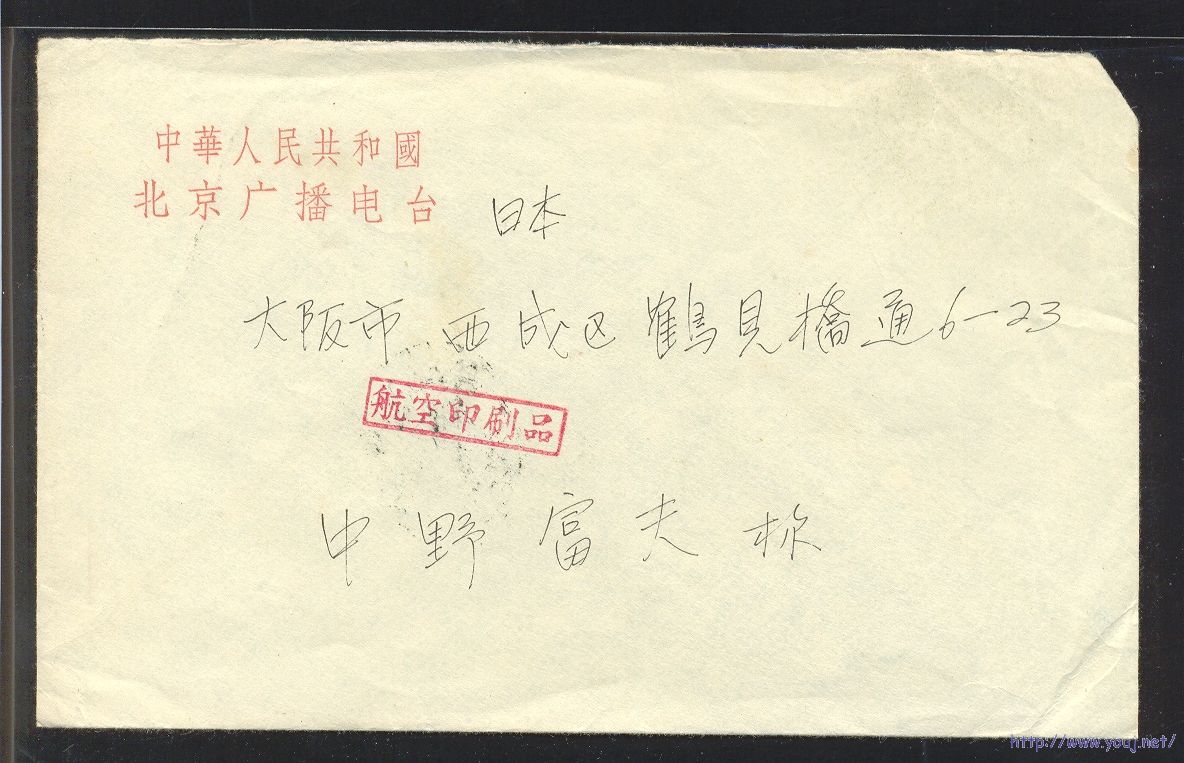 中華人民共和國
北京广播电台
日本
大阪市西成区鶴見橋通6-23
航空印刷品
中野富夫
http://www.youj.net/